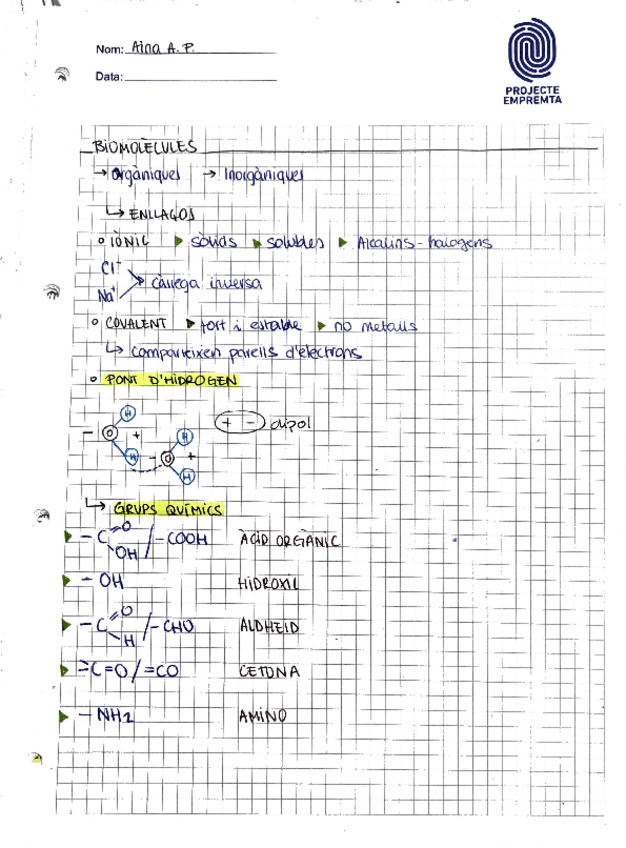 Nom: Aina A. P.
Data:
PROJECTE
EMPREMTA
BIOMOLÈCULES
→ Orgàniques → Inorgàniques
↳ ENLLAÇOS
o IÒNIC ▶ sòlids ▶ solubles ▶ Alcalins - halogens
Cl⁻
Na⁺
càrrega inversa
o COVALENT ▶ fort i estable ▶ no metalls
↳ comparteixen parells d'electrons
o PONT D'HIDROGEN
+ - dipol
H
- O +
H
H
- O +
H
↳ GRUPS QUÍMICS
▶ -C=O OH / -COOH ÀCID ORGÀNIC
▶ - OH HIDROXIL
▶ -C=O H / -CHO ALDHEID
▶ =C=O / =CO CETONA
▶ - NH2 AMINO